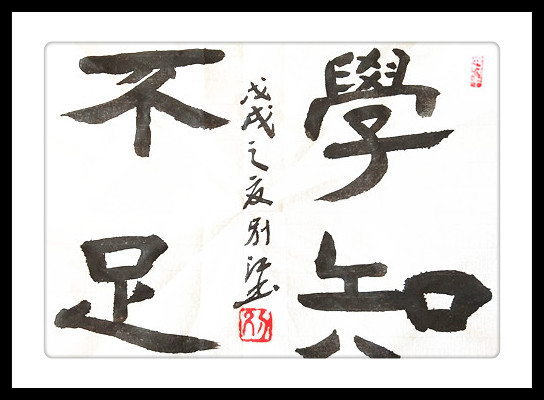 學知
不足
戊戌之夏别